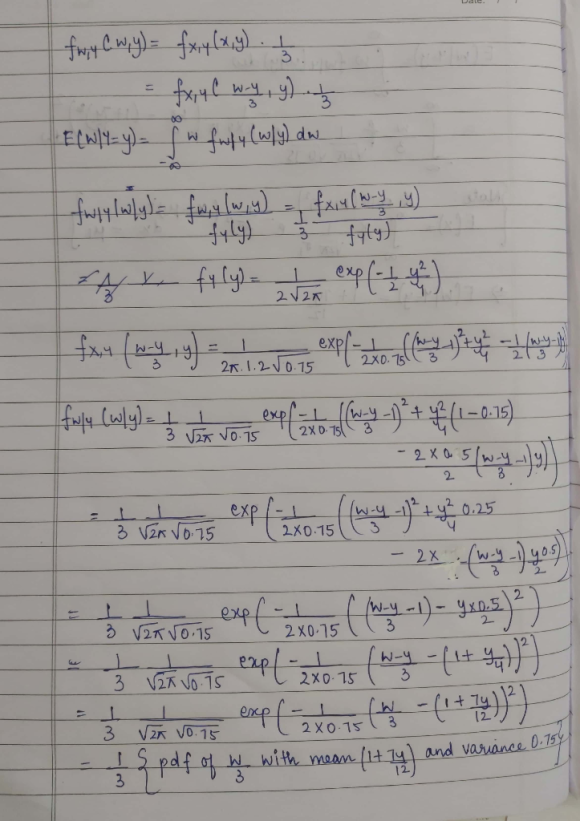 Date:
f_{W,Y}(w,y) = f_{X,Y}(x,y) · 1/3
= f_{X,Y}( (w-y)/3 , y) · 1/3
E(W|Y=y) = ∫_{-∞}^{∞} w f_{W|Y}(w|y) dw
f_{W|Y}(w|y) = f_{W,Y}(w,y)/f_Y(y) = 1/3 f_{X,Y}((w-y)/3 , y)/f_Y(y)
f_Y(y) = 1/(2√2π) exp(-1/2 y²/4)
f_{X,Y}((w-y)/3 , y) = 1/(2π.1.2√0.75) exp(-1/(2×0.75) (((w-y)/3 -1)² + y²/4 - 1/2 ((w-y)/3 -1)y
f_{W|Y}(w|y) = 1/3 1/(√2π √0.75) exp(-1/(2×0.75) (((w-y)/3 -1)² + y²/4 (1-0.75)
- (2×0.5)/2 ((w-y)/3 -1)y))
= 1/3 1/(√2π √0.75) exp(-1/(2×0.75) (((w-y)/3 -1)² + y²/4 0.25
- 2× ((w-y)/3 -1) y/2 0.5))
= 1/3 1/(√2π √0.75) exp(-1/(2×0.75) (((w-y)/3 -1) - (y×0.5)/2)²)
= 1/3 1/(√2π √0.75) exp(-1/(2×0.75) ((w-y)/3 - (1+ y/4))²)
= 1/3 1/(√2π √0.75) exp(-1/(2×0.75) (w/3 - (1+ 7y/12))²)
= 1/3 { pdf of w/3 with mean (1+ 7y/12) and variance 0.75}